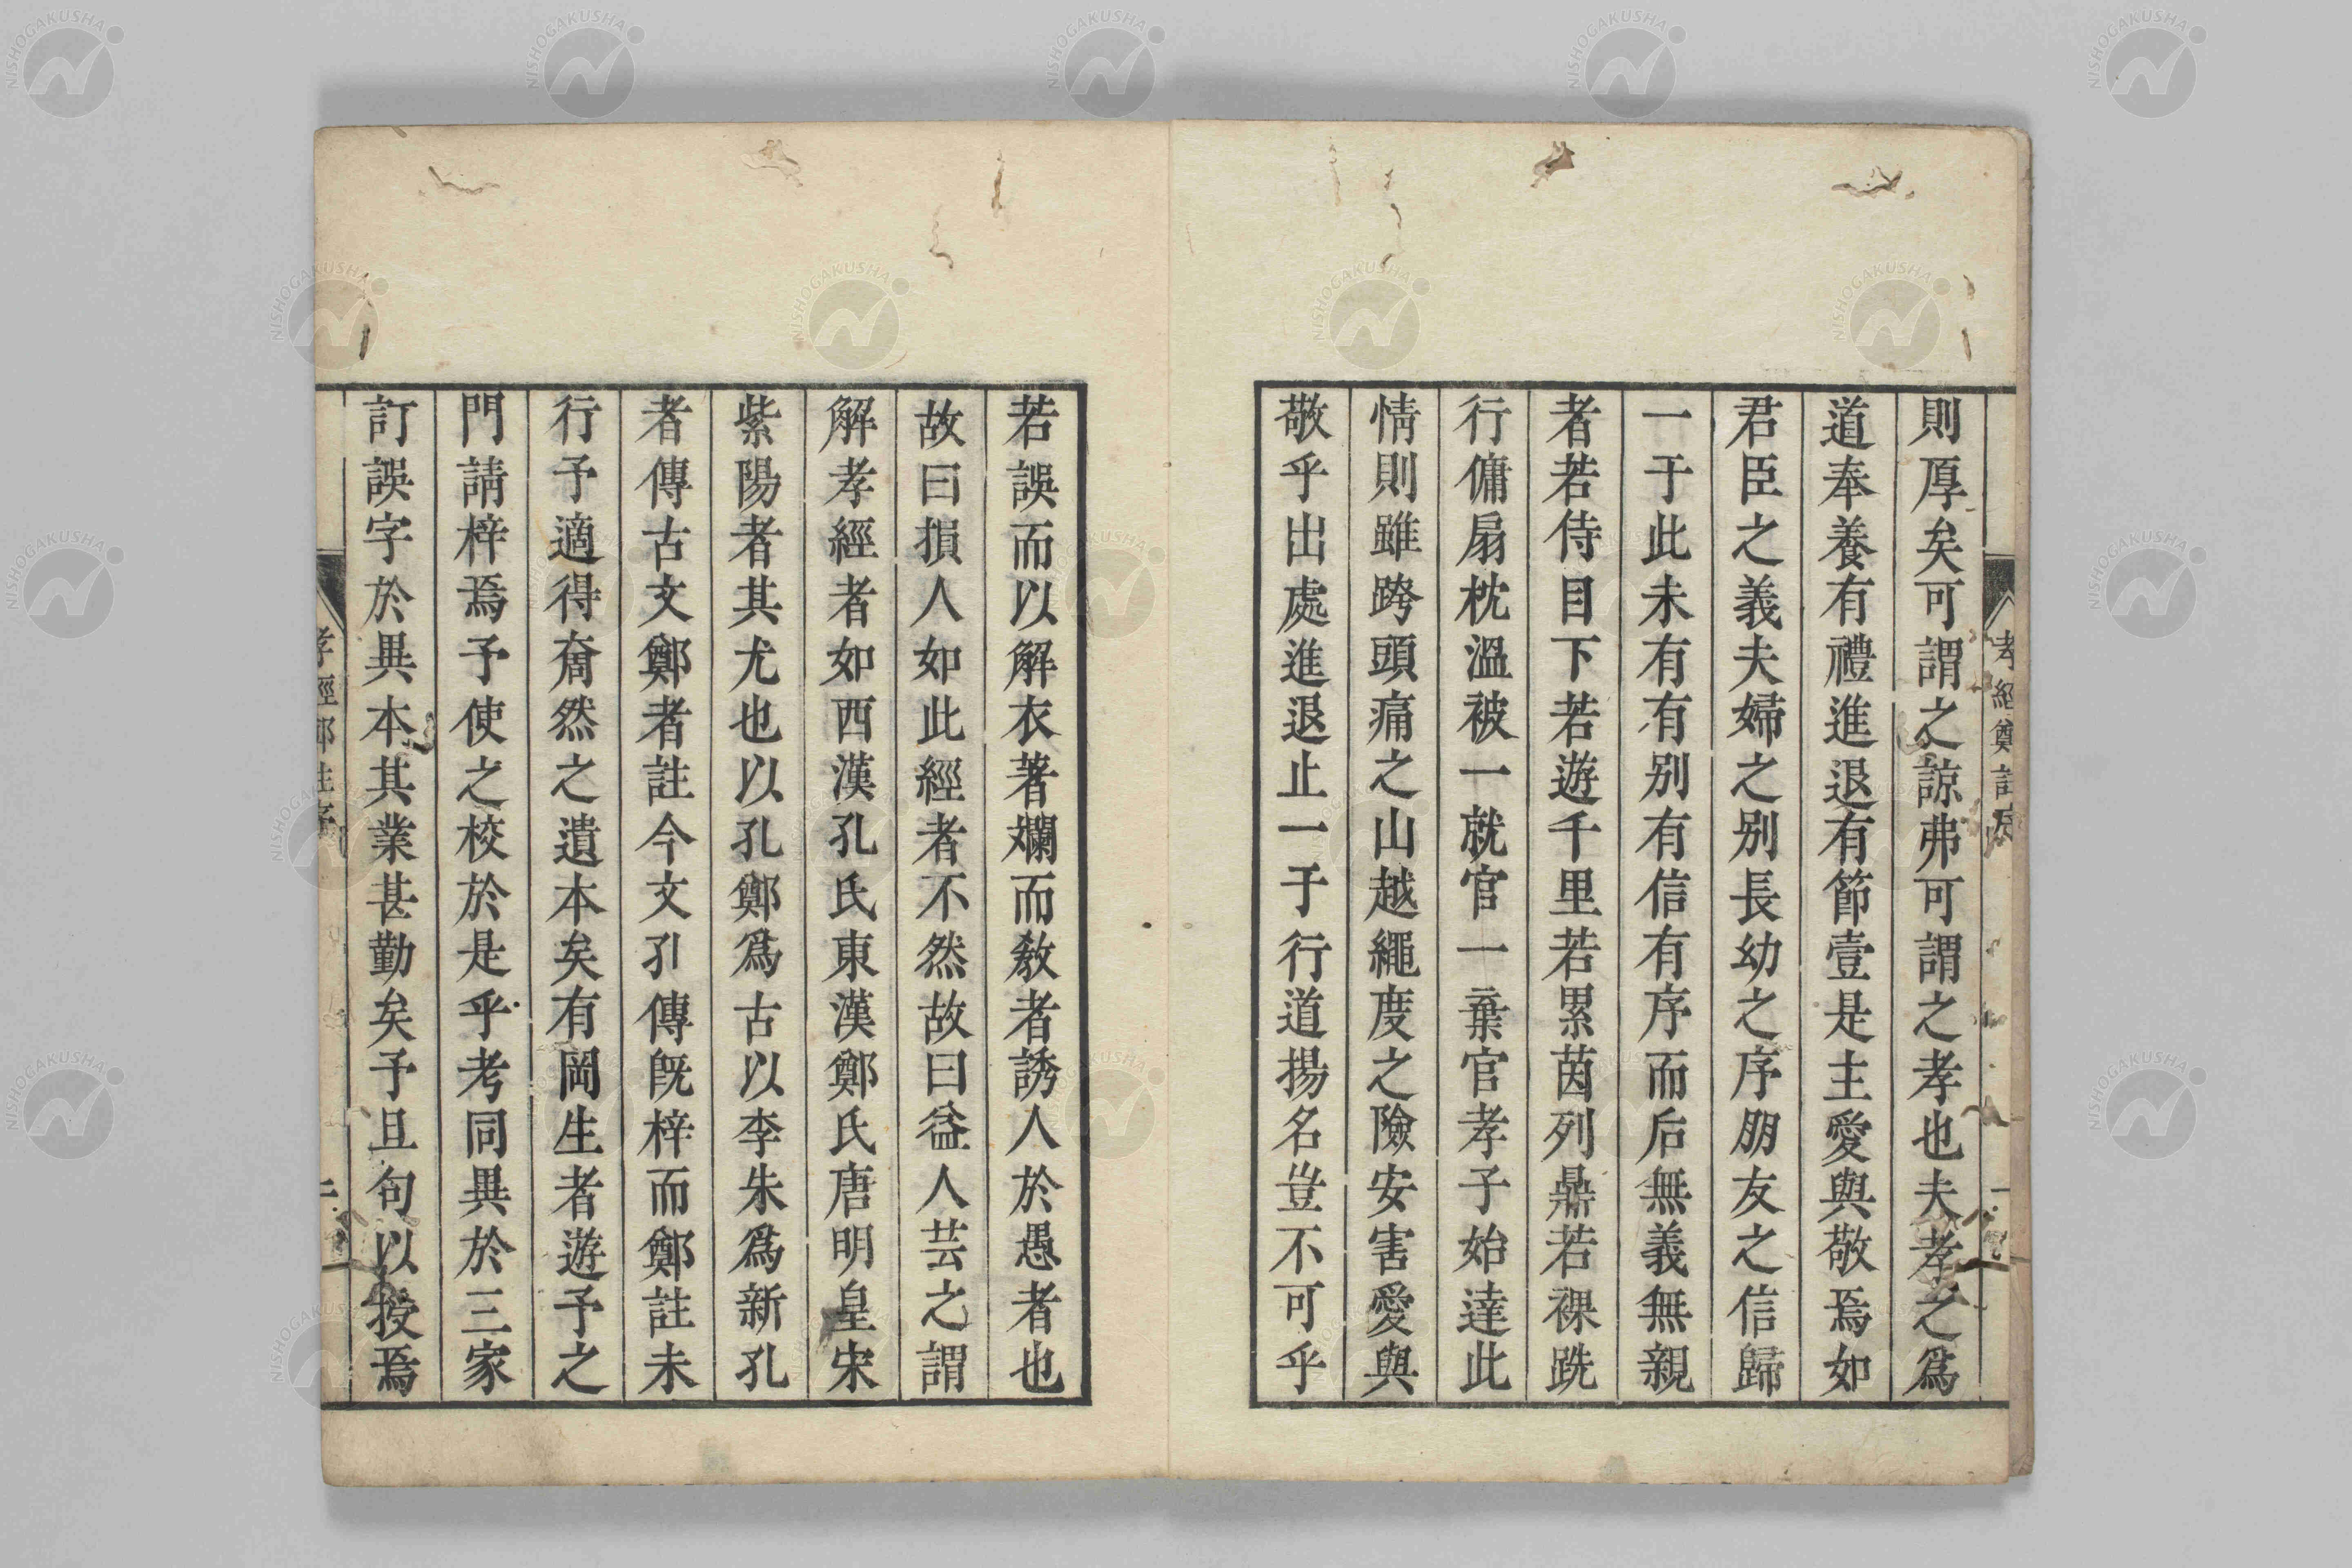 則厚矣可謂之諒弗可謂之孝也夫孝之爲
道奉養有禮進退有節壹是主愛與敬焉如
君臣之義夫婦之別長幼之序朋友之信歸
一于此未有有別有信有序而后無義無親
者若侍目下若遊千里若累茵列鼎若裸跣
行傭扇枕溫被一就官一棄官孝子始達此
情則雖跨頭痛之山越繩度之險安害愛與
敬乎出處進退止一于行道揚名豈不可乎
若誤而以解衣著斕而教者誘人於愚者也
故曰損人如此經者不然故曰益人芸之謂
解孝經者如西漢孔氏東漢鄭氏唐明皇宋
紫陽者其尤也以孔鄭爲古以李朱爲新孔
者傳古文鄭者註今文孔傳旣梓而鄭註未
行予適得奝然之遺本矣有岡生者遊予之
門請梓焉予使之校於是乎考同異於三家
訂誤字於異本其業甚勤矣予且句以授焉
孝經鄭註序
一
孝經鄭註序
二
NISHOGAKUSHA